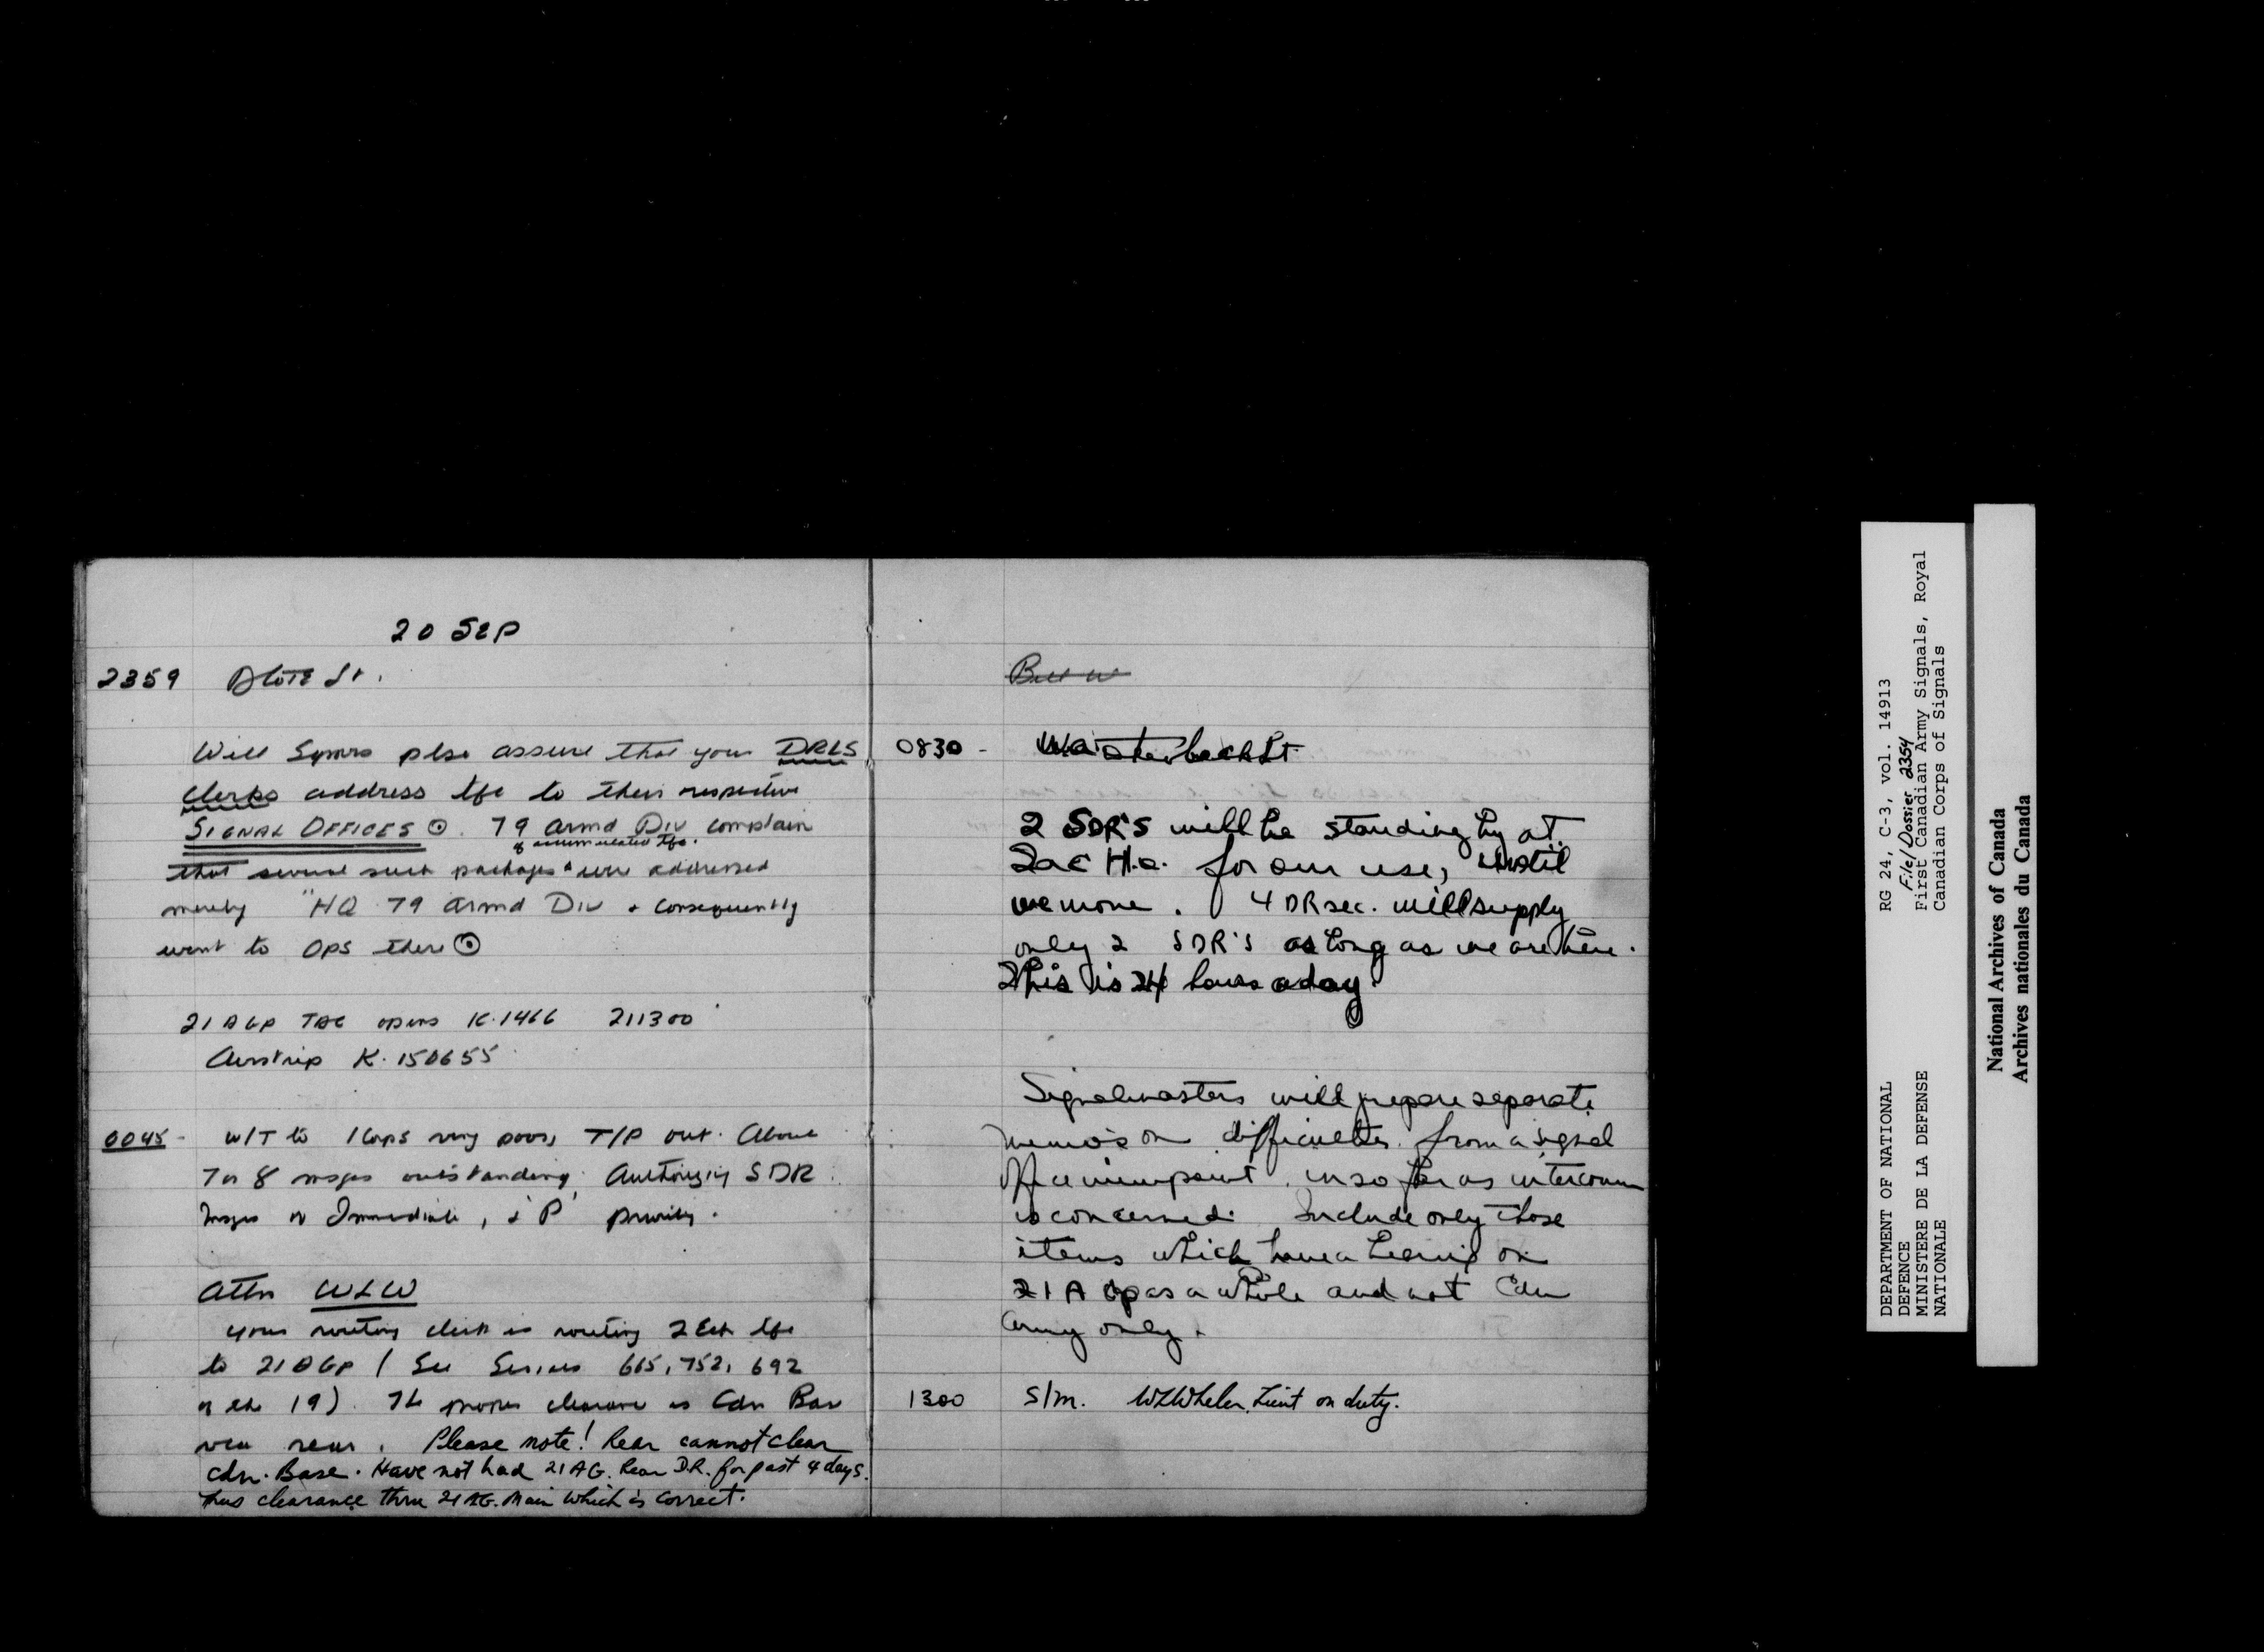 20 SEP
2359 St.
Will plse assure that your DRLS
clerks address tfc to their respective
SIGNAL OFFICES ⊙. 79 Armd Div complain
of accumulated tfc.
that several such packages were addressed
merely "HQ 79 Armd Div & consequently
went to Ops there ⊙
21 A GP TAC opens K.1466 211300
Airstrip K.150655
0045 - W/T to 1 Corps very poor, T/P out. About
7 or 8 msges outstanding. Authorizing SDR
msges on Immediate, & P priority.
Attn WLW
your routing clerk is routing 2 Ech tfc
to 21 A GP (See Serials 665, 752, 692
of the 19). The proper clearance is Cdn Base
via rear. Please note! Rear cannot clear
Cdn. Base. Have not had 21 AG. Rear D.R. for past 4 days.
thus clearance thru 21 AG. Main which is correct.
Bill W
0830 - Lt.
2 SDR'S will be standing by at
for our use, until
we move. 4 DR sec. will supply
only 2 SDR's as long as we are here.
This is 24 hours a day.
Signalmasters will prepare separate
memo's on difficulties from a signal
office viewpoint in so far as intercomm
is concerned. Include only those
items which have a bearing on
21 A Gp as a whole and not Cdn
Army only.
1300 S/M. WLWheler, Lieut on duty.
DEPARTMENT OF NATIONAL
DEFENCE
MINISTERE DE LA DEFENSE
NATIONALE
RG 24, C-3, vol. 14913
File/Dossier 2354
First Canadian Army Signals, Royal
Canadian Corps of Signals
National Archives of Canada
Archives nationales du Canada